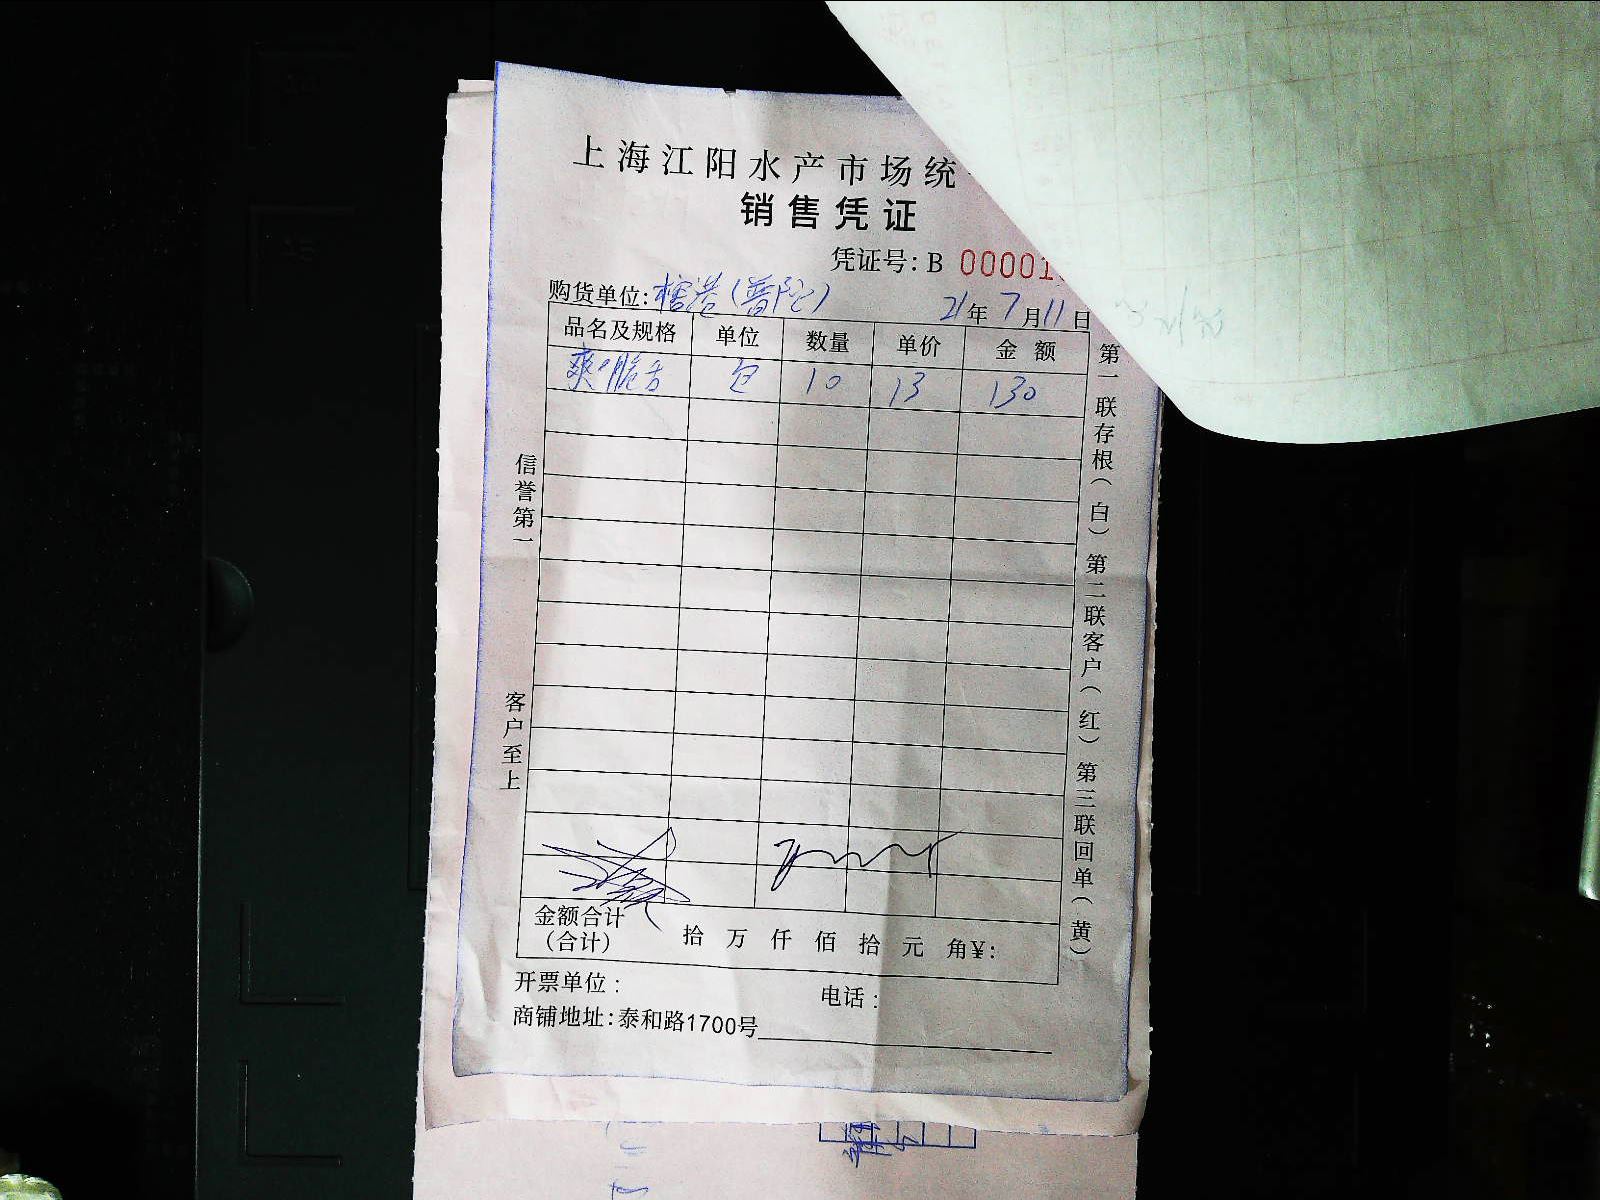 上海江阳水产市场统
销售凭证
凭证号: B 00001
购货单位: 港(普陀) 21年7月11日
品名及规格 单位 数量 单价 金额
爽脆舌 包 10 13 130
信誉第一
客户至上
第一联存根(白) 第二联客户(红) 第三联回单(黄)
金额合计
(合计) 拾 万 仟 佰 拾 元 角¥:
开票单位: 电话:
商铺地址: 泰和路1700号